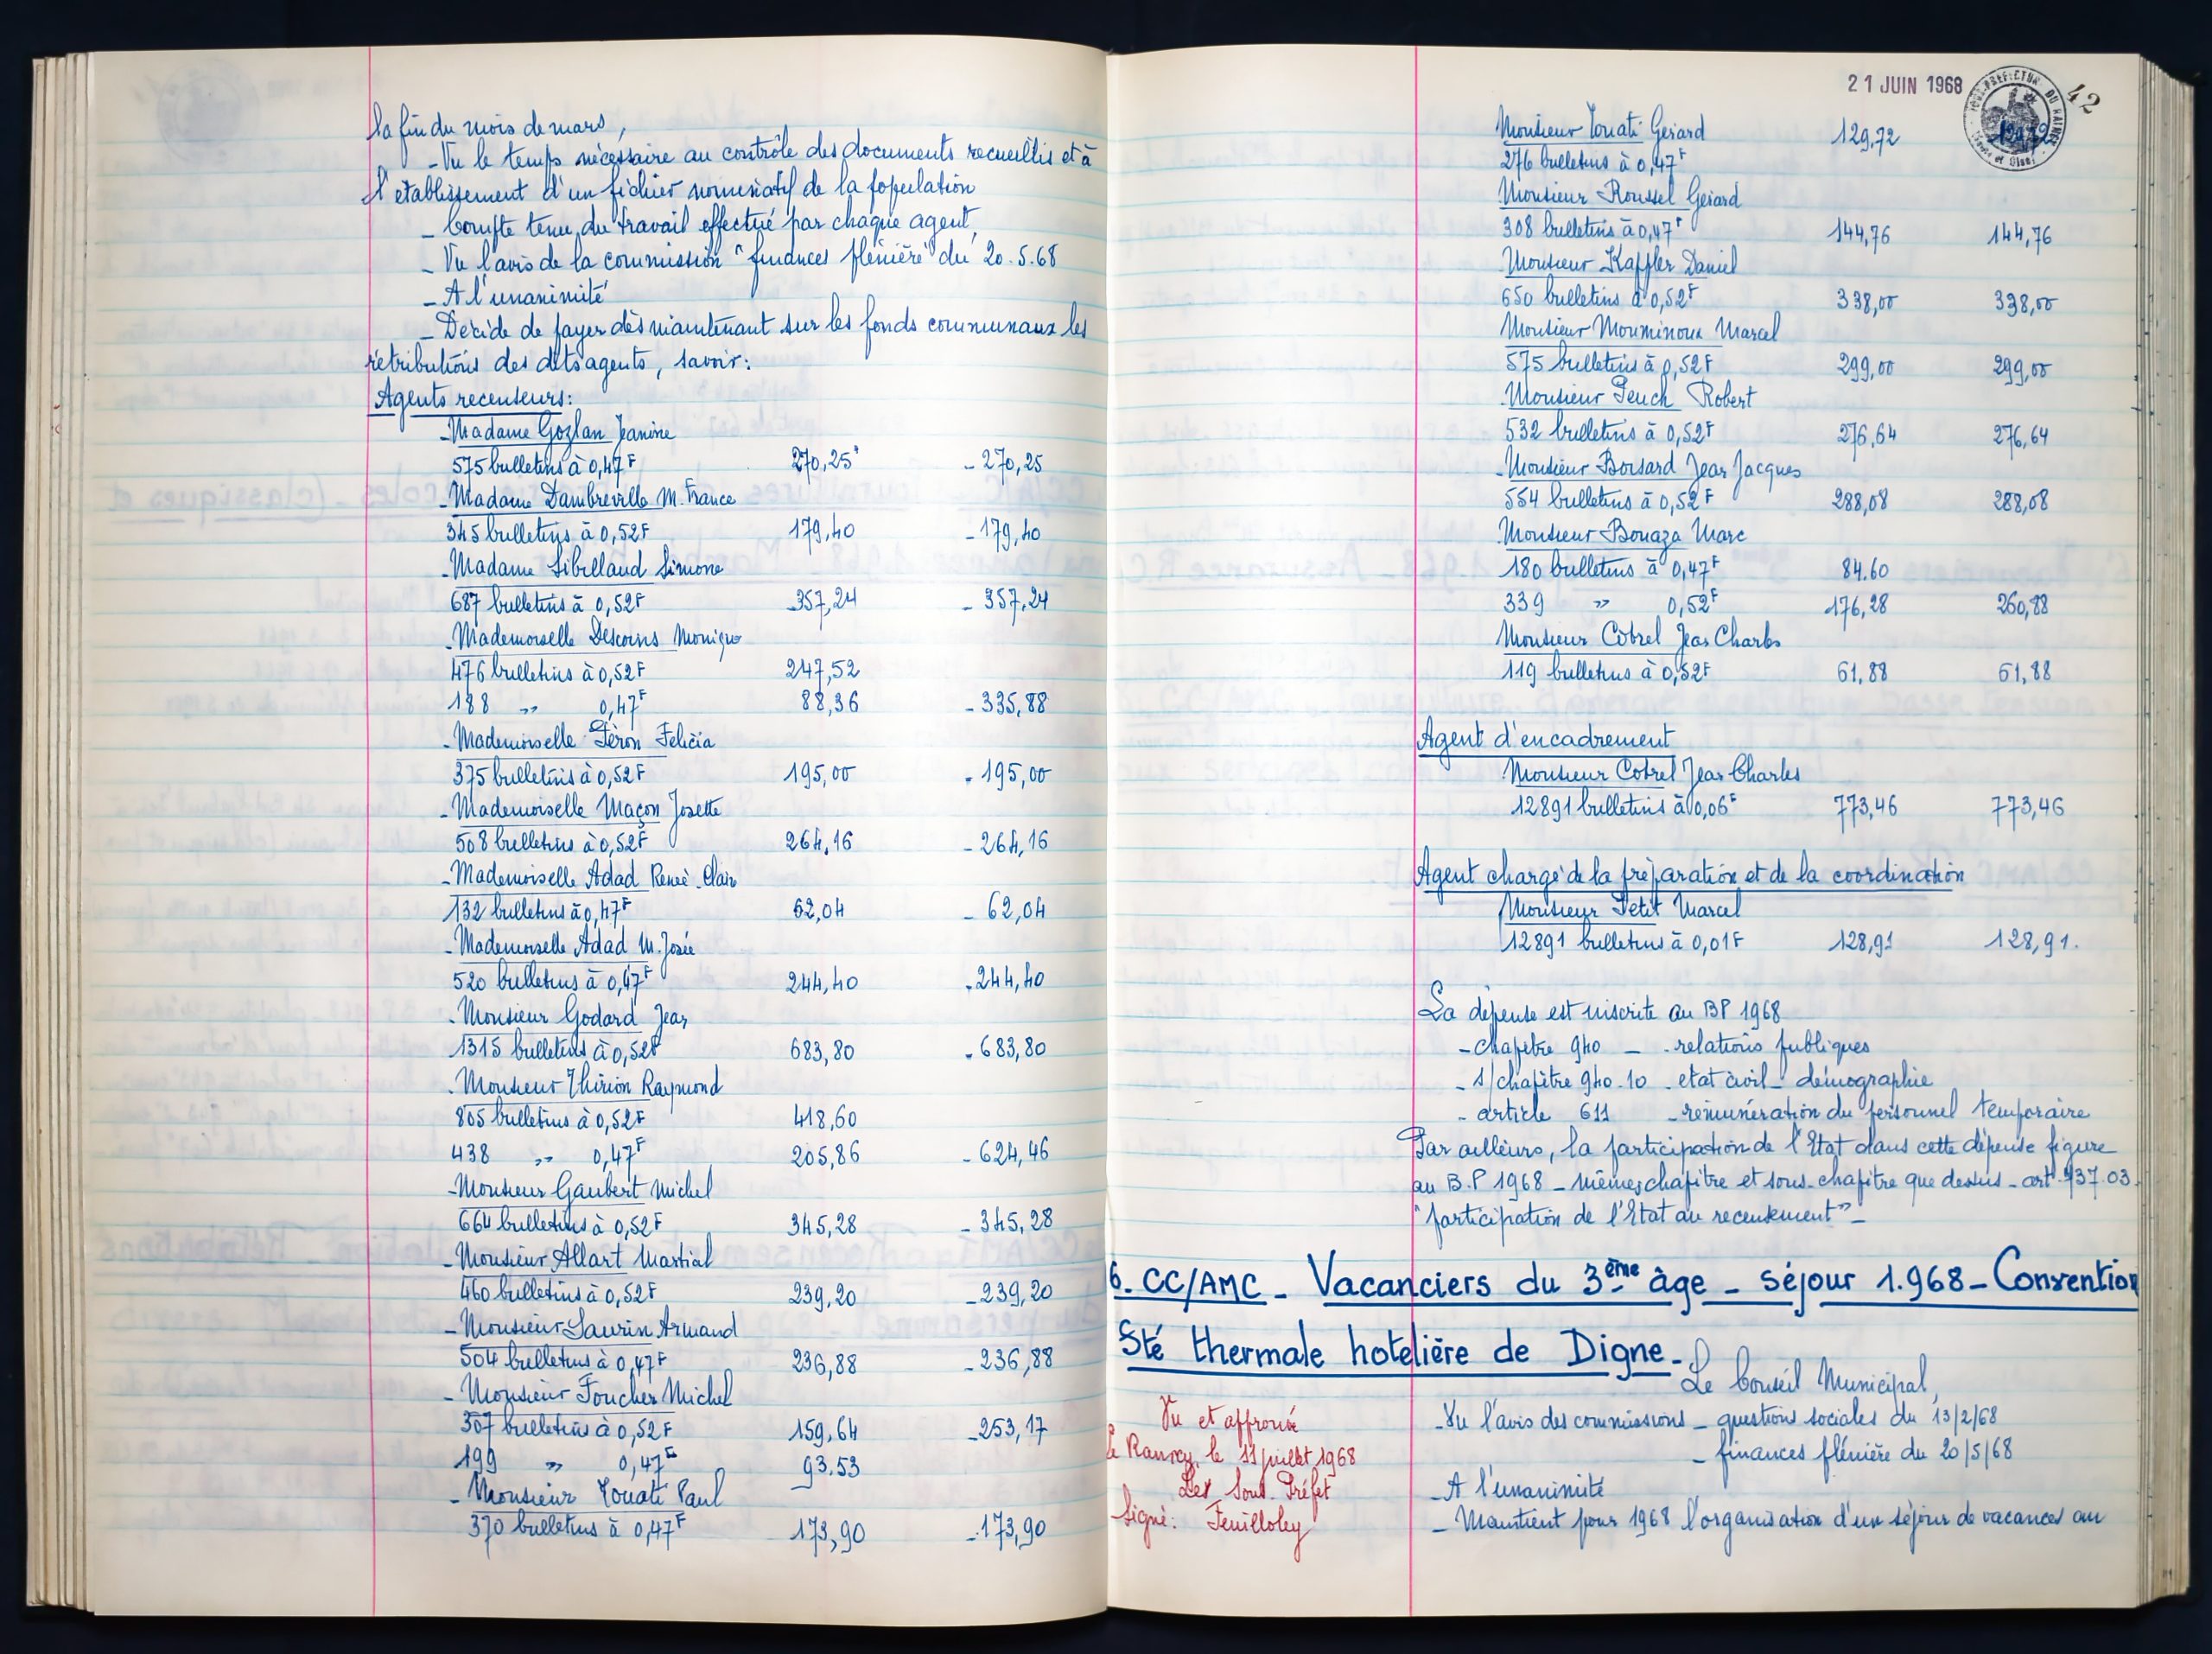 la fin du mois de mars,
- Vu le temps nécessaire au contrôle des documents recueillis et à
l'établissement d'un fichier nominatif de la population
- Compte tenu du travail effectué par chaque agent,
- Vu l'avis de la commission "finances plénière" du 20.5.68
- A l'unanimité
- Décide de payer dès maintenant sur les fonds communaux les
rétributions des dits agents, savoir:
Agents recenseurs:
- Madame Gozlan Jeanine
575 bulletins à 0,47F 270,25 - 270,25
- Madame Dambreville M. France
345 bulletins à 0,52F 179,40 - 179,40
- Madame Sibillaud Simone
687 bulletins à 0,52F 357,24 - 357,24
- Mademoiselle Descoins Monique
476 bulletins à 0,52F 247,52
188 " 0,47F 88,36 - 335,88
- Mademoiselle Féron Felicia
375 bulletins à 0,52F 195,00 - 195,00
- Mademoiselle Maçon Josette
508 bulletins à 0,52F 264,16 - 264,16
- Mademoiselle Adad Renée-Claire
132 bulletins à 0,47F 62,04 - 62,04
- Mademoiselle Adad M. Josée
520 bulletins à 0,47F 244,40 - 244,40
- Monsieur Godard Jean
1315 bulletins à 0,52F 683,80 - 683,80
- Monsieur Thirion Raymond
805 bulletins à 0,52F 418,60
438 " 0,47F 205,86 - 624,46
- Monsieur Gaubert Michel
664 bulletins à 0,52F 345,28 - 345,28
- Monsieur Allart Martial
460 bulletins à 0,52F 239,20 - 239,20
- Monsieur Laurin Armand
504 bulletins à 0,47F 236,88 - 236,88
- Monsieur Foucher Michel
307 bulletins à 0,52F 159,64 - 253,17
199 " 0,47F 93.53
- Monsieur Touati Paul
370 bulletins à 0,47F 173,90 - 173,90
21 JUIN 1968
42
Monsieur Touati Gérard 129,72
276 bulletins à 0,47F
Monsieur Roussel Gérard
308 bulletins à 0,47F 144,76 144,76
Monsieur Kaffler Daniel
650 bulletins à 0,52F 338,00 338,00
Monsieur Mouminoux Marcel
575 bulletins à 0,52F 299,00 299,00
Monsieur Peuch Robert
532 bulletins à 0,52F 276,64 276,64
- Monsieur Boisard Jean Jacques
554 bulletins à 0,52F 288,08 288,08
Monsieur Bouaza Marc
180 bulletins à 0,47F 84.60
339 " 0,52F 176,28 260,88
Monsieur Cobrel Jean Charles
119 bulletins à 0,52F 61,88 61,88
Agent d'encadrement
Monsieur Cobrel Jean Charles
12891 bulletins à 0,06F 773,46 773,46
Agent chargé de la préparation et de la coordination
Monsieur Petit Marcel
12891 bulletins à 0,01F 128,91 128,91.
La dépense est inscrite au BP 1968
- chapitre 940 - relations publiques
- s/chapitre 940.10 - état civil - démographie
- article 611 - rémunération du personnel temporaire
Par ailleurs, la participation de l'Etat dans cette dépense figure
au B.P 1968 - mêmes chapitre et sous-chapitre que dessus - art. 737.03
"participation de l'Etat au recensement" -
6. CC/AMC - Vacanciers du 3ème âge - séjour 1.968 - Convention
Sté thermale hotelière de Digne -
Le Conseil Municipal,
- Vu l'avis des commissions - questions sociales du 13/2/68
- finances plénière du 20/5/68
- A l'unanimité
- Maintient pour 1968 l'organisation d'un séjour de vacances au
Vu et approuvé
Le Raincy, le 11 juillet 1968
Le Sous-Préfet
Signé: Feuilloley